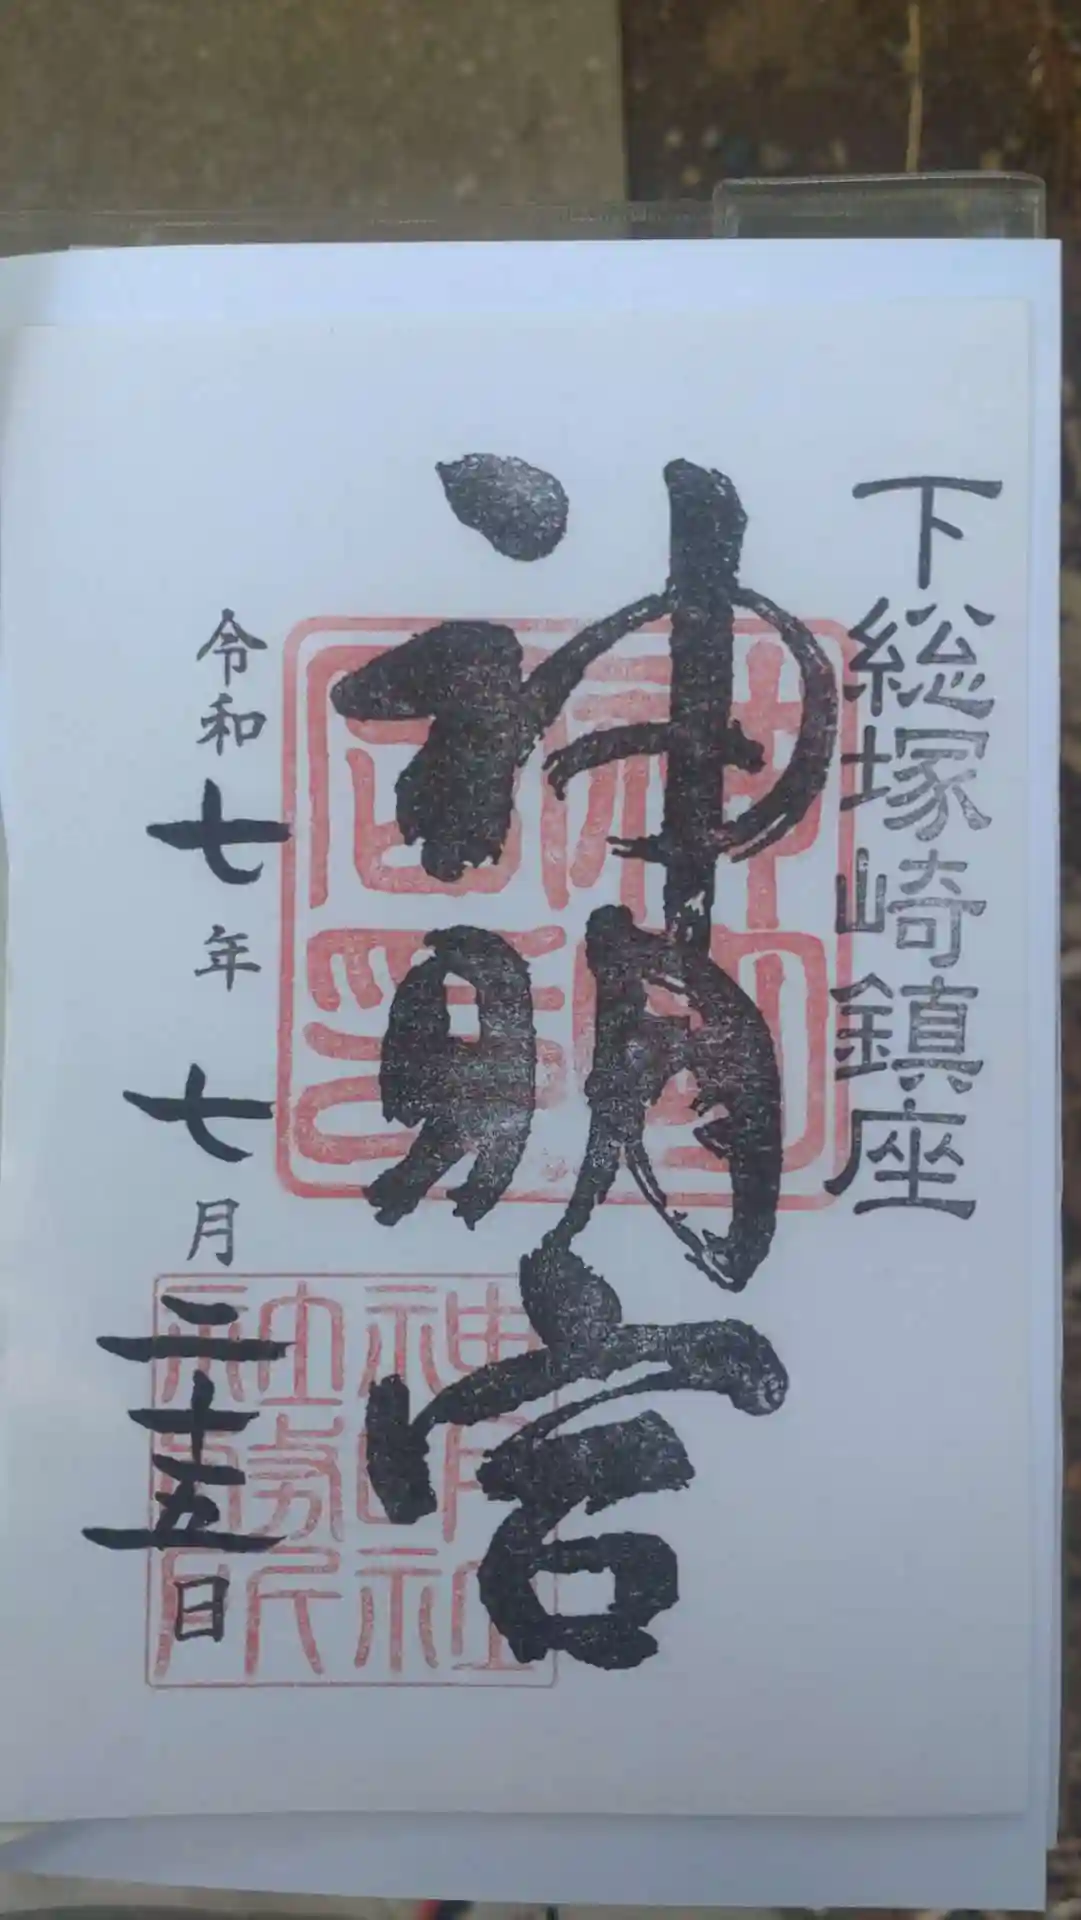 下総塚崎鎮座
神明宮
令和七年七月二十五日
神明社
社務所